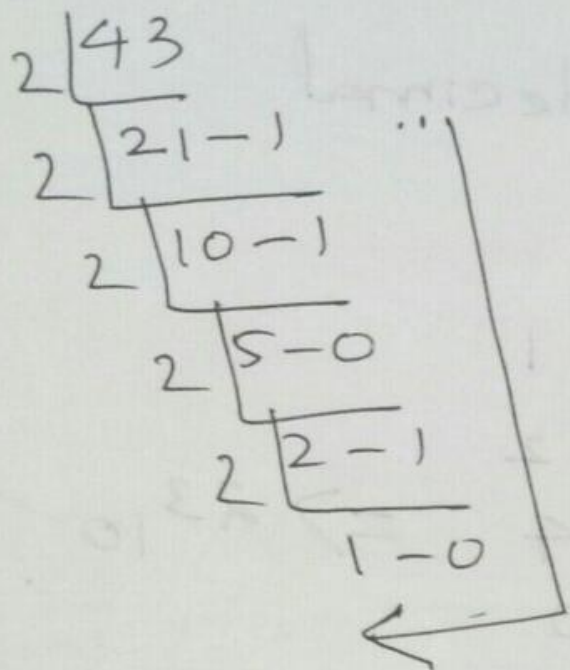 2 43
2 21 - 1
2 10 - 1
2 5 - 0
2 2 - 1
1 - 0